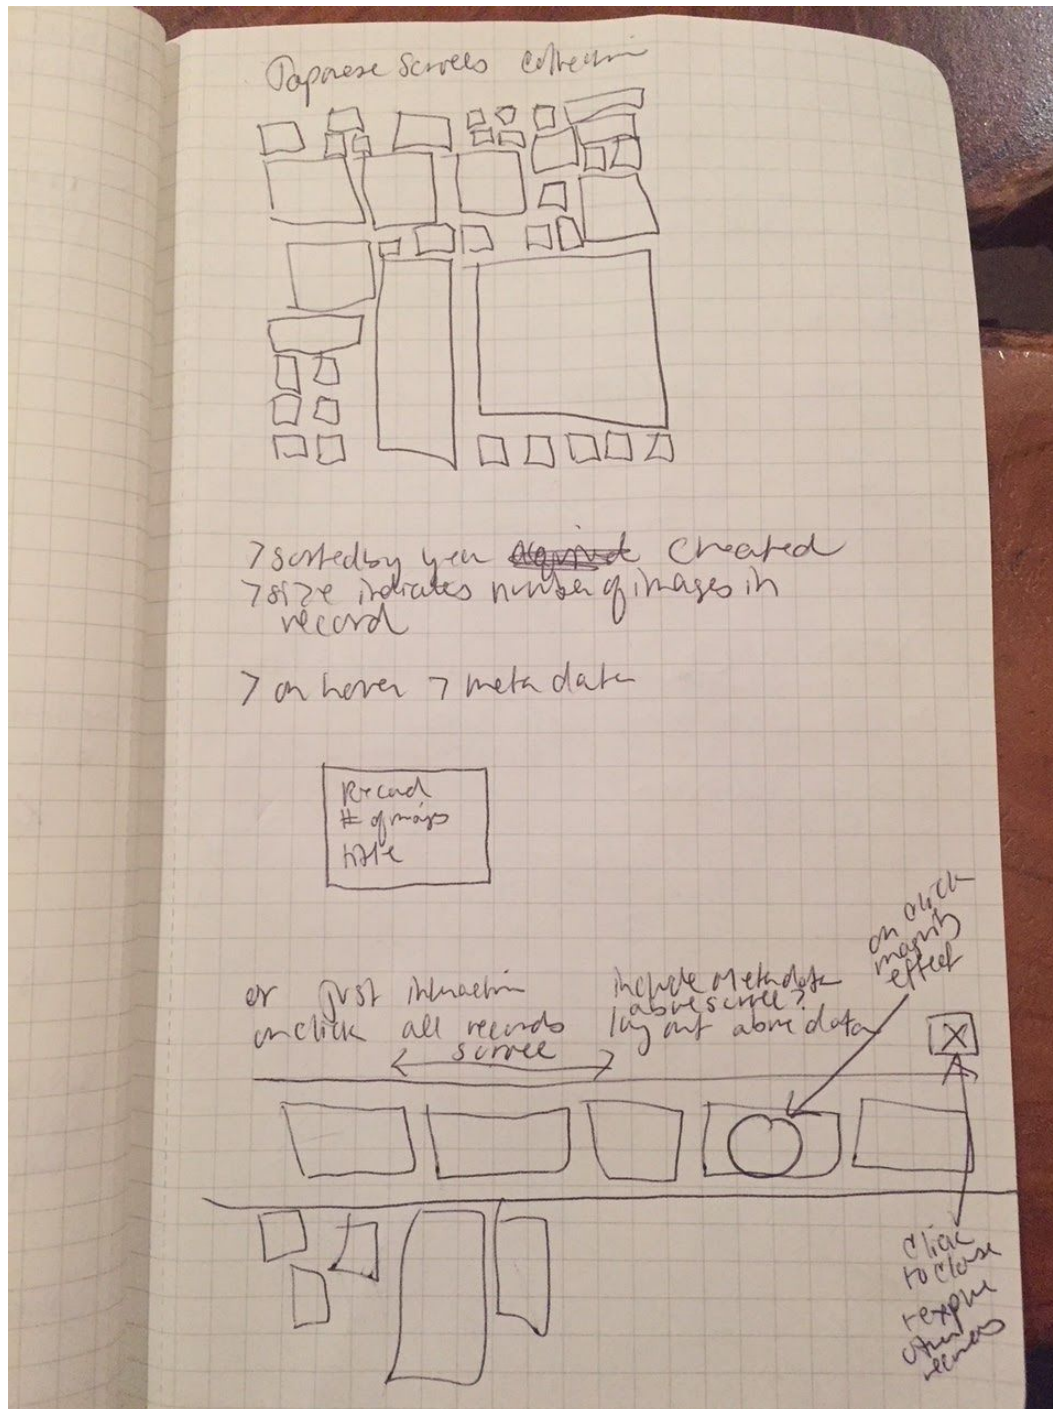 Japanese Scrolls Collection
> sorted by year acquired created
> size indicates number of images in
record
> on hover > metadata
Record
# of imgs
title
or just interaction
on click all records
scroll
include metadata
above scroll?
lay out above data
on click
magnify
effect
X
click
to close
+ explore
other
records